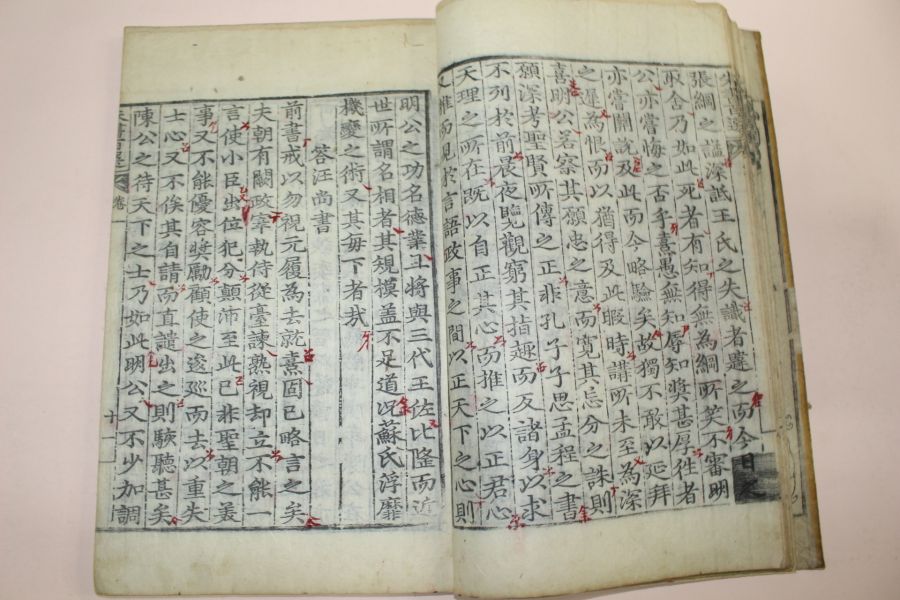 張綱之諡深詆王氏之失識者韙之而今日
取舍乃如此死者有知得無為綱所笑不審明
公亦嘗悔之否乎熹愚無知辱知奬甚厚徃者
亦嘗關說及此而今略驗矣故獨不敢以延拜
之遲為恨而以猶得及此暇時講所未至為深
喜明公若察其願忠之意而寬其忘分之誅則
願深考聖賢所傳之正非孔子子思孟程之書
不列於前晨夜覽觀窮其指趣而反諸身以求
天理之所在旣以自正其心而推之以正君心
又推而見於言語政事之間以正天下之心則
明公之功名德業且將與三代王佐比隆而近
世所謂名相者其規模盖不足道况蘇氏浮靡
機變之術又其每下者哉
答汪尚書
前書戒以勿視元履為去就熹固已略言之矣
夫朝有闕政宰執侍從臺諫熟視却立不能一
言使小臣出位犯分顚沛至此已非聖朝之美
事又不能優容奬勵顧使之逡廵而去以重失
士心又不俟其自請而直譴出之則駭聽甚矣
陳公之待天下之士乃如此明公又不少加調
朱書百選 卷
十一